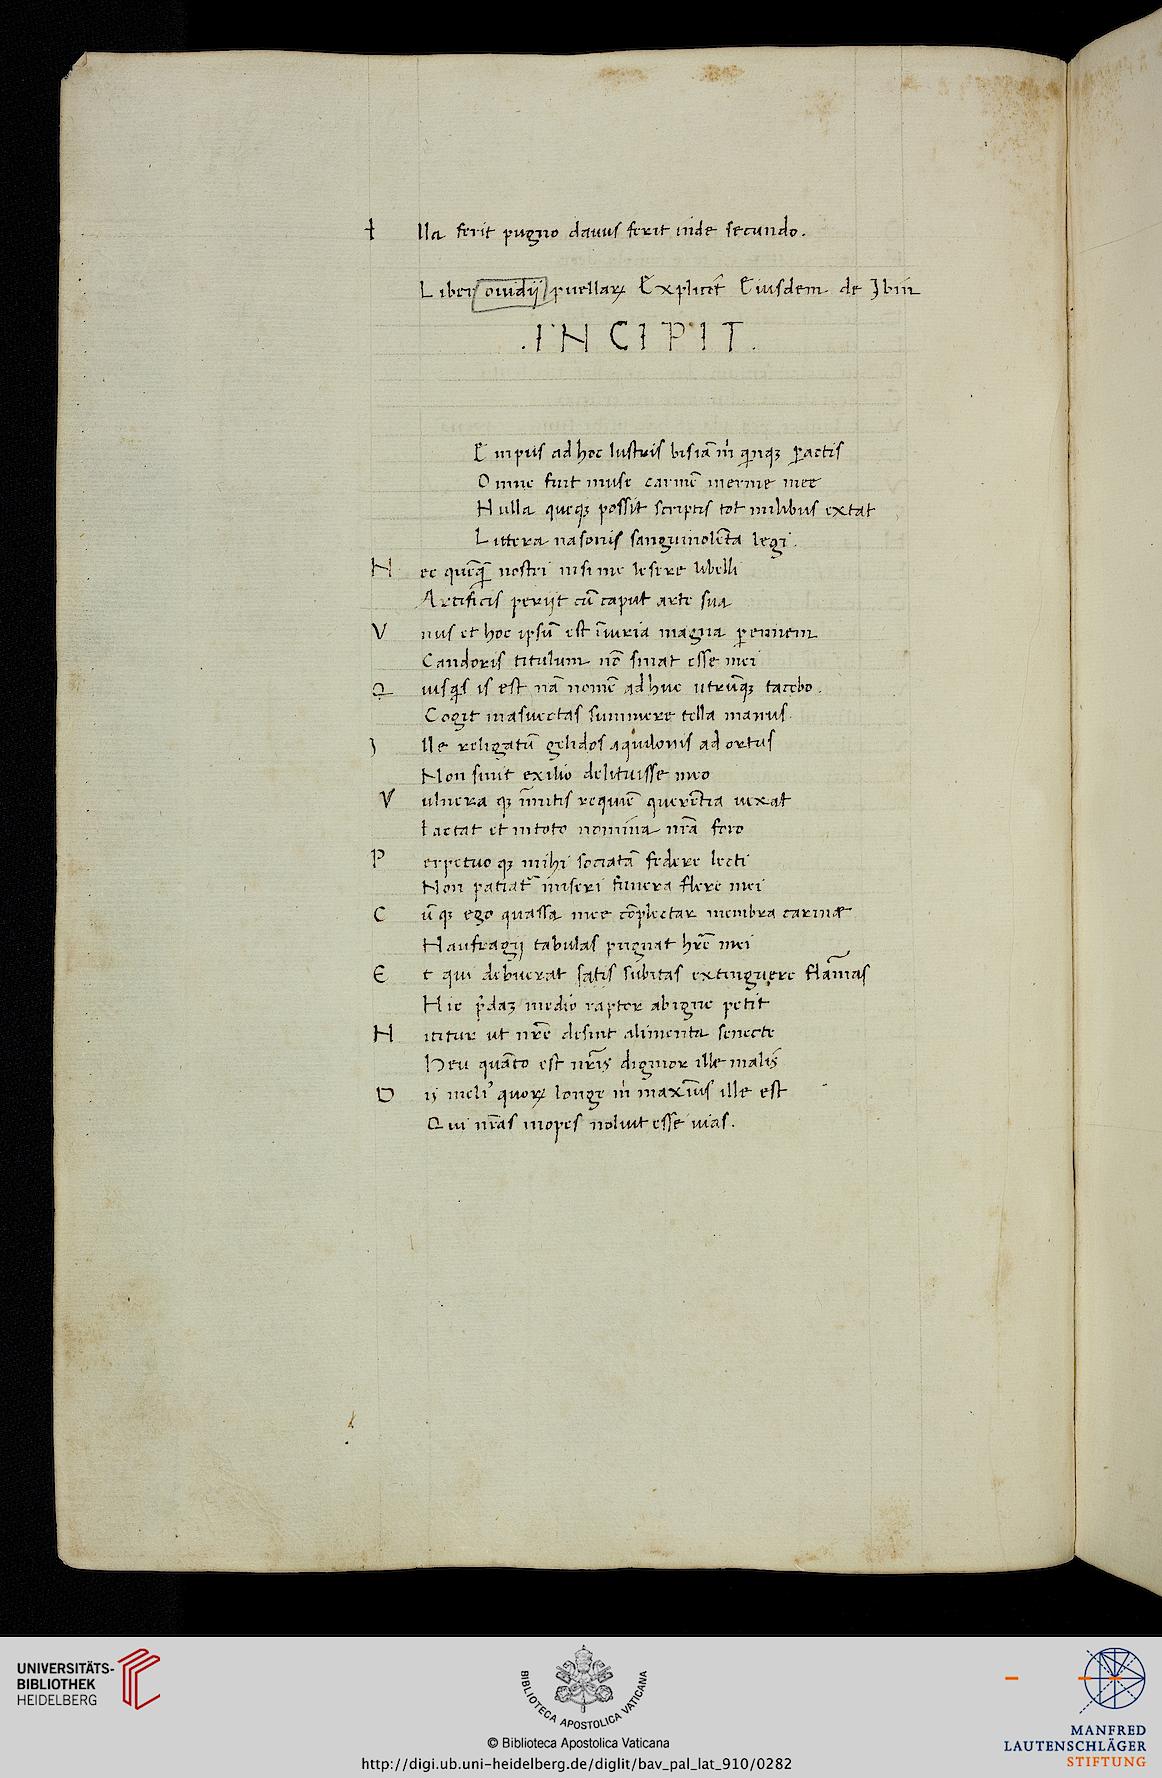 I lla ferit pugno davus ferit inde secundo.
Liber ouidij puellaꝝ Explicit Eiusdem de Ibin
.INCIPIT.
E mpus ad hoc lustris bis iā m̄ quīqꝫ ꝑactis
Omne fuit muse carmē inerme mee
Nulla queqꝫ possit scriptis tot milibus extat
Littera nasonis sanguinolēta legi.
N ec quēq̄ nostri nisi me lesere libelli
Artificis perijt cū caput arte sua
V nus et hoc ipsū est īiuria magna ꝑennem
Candoris titulum nō sinat esse mei
Q uisq̄s is est nā nomē adhuc utrūqꝫ tacebo.
Cogit ma suectas summere tella manus.
I lle religatū gelidos aquilonis ad ortus
Non sinit exilio delituisse meo
V ulnera qꝫ īmitis requiē querētia uexat
Iactat et in toto nomina nr̄a foro
P erpetuo qꝫ mihi sociatā federe lecti
Non patiat᷑ miseri funera flere mei
C ū qꝫ ego quassa mee cōplectar membra carinæ
Naufragij tabulas pugnat hr̄e mei
E t qui debuerat satis subitas extinguere flāmas
Hic p̄daꝫ medio raptor ab igne petit
N ititur ut nr̄e desint alimenta senecte
Heu quāto est nr̄is dignior ille malis
D ij meli᾽ quoꝝ longe m̄ maxīus ille est
Qui nr̄as inopes noluit esse uias.
UNIVERSITÄTS-
BIBLIOTHEK
HEIDELBERG
BIBLIOTECA APOSTOLICA VATICANA
© Biblioteca Apostolica Vaticana
http://digi.ub.uni-heidelberg.de/diglit/bav_pal_lat_910/0282
MANFRED
LAUTENSCHLÄGER
STIFTUNG